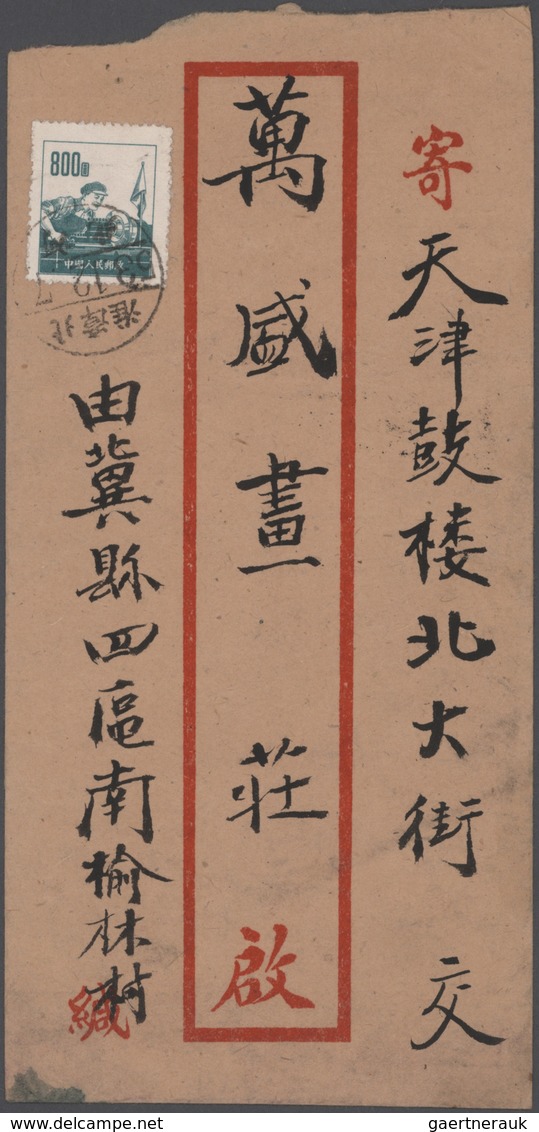 寄
天津鼓楼北大街 交
萬盛畫莊 啟
800圓
中國人民郵政
由冀縣四區南榆林村
緘
gaertnerauk
© gaertnerauk